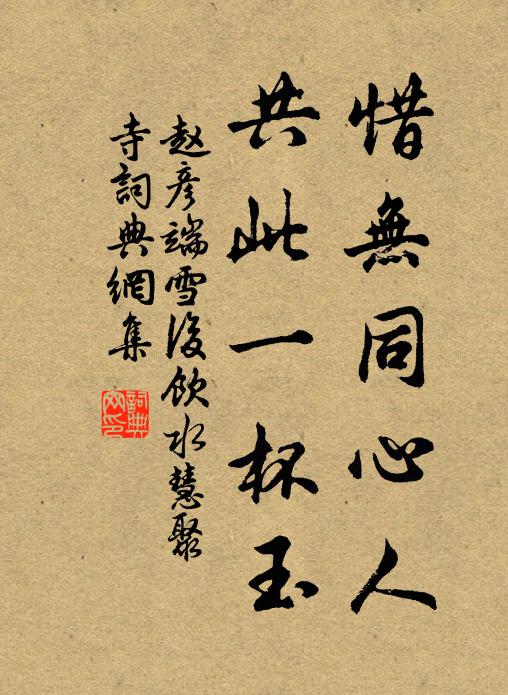 惜無同心人
共此一杯玉
赵彦端雪後飲水慧聚
寺詞典網集
詞典网印